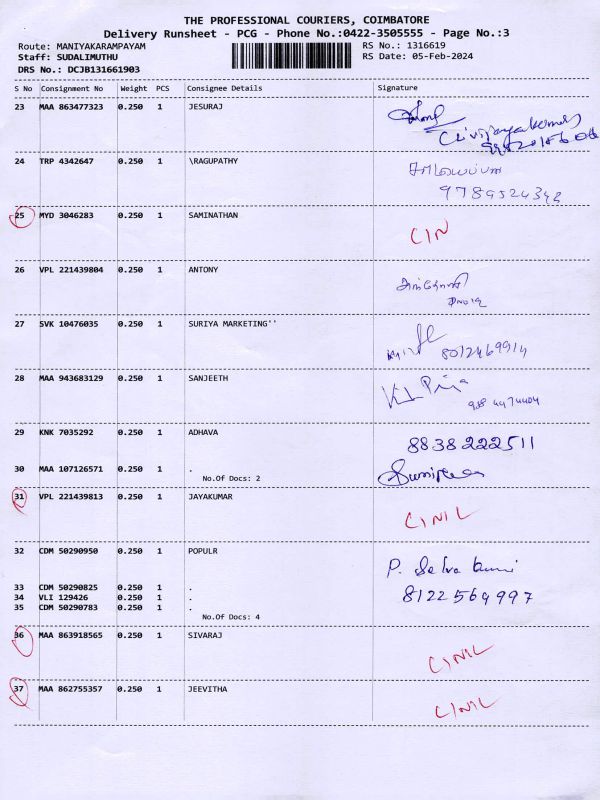 THE PROFESSIONAL COURIERS, COIMBATORE
Delivery Runsheet - PCG - Phone No.:0422-3505555 - Page No.:3
Route: MANIYAKARAMPAYAM RS No.: 1316619
Staff: SUDALIMUTHU RS Date: 05-Feb-2024
DRS No.: DCJB131661903
S No Consignment No Weight PCS Consignee Details Signature
23 MAA 863477323 0.250 1 JESURAJ
24 TRP 4342647 0.250 1 \RAGUPATHY
9789524342
25 MYD 3046283 0.250 1 SAMINATHAN
CIN
26 VPL 221439804 0.250 1 ANTONY
27 SVK 10476035 0.250 1 SURIYA MARKETING''
8012469914
28 MAA 943683129 0.250 1 SANJEETH
29 KNK 7035292 0.250 1 ADHAVA
8838222511
30 MAA 107126571 0.250 1 .
No.Of Docs: 2
31 VPL 221439813 0.250 1 JAYAKUMAR
CINIL
32 CDM 50290950 0.250 1 POPULR
P. Selva
33 CDM 50290825 0.250 1 .
34 VLI 129426 0.250 1 .
8122564997
35 CDM 50290783 0.250 1 .
No.Of Docs: 4
36 MAA 863918565 0.250 1 SIVARAJ
CINIL
37 MAA 862755357 0.250 1 JEEVITHA
CINIL